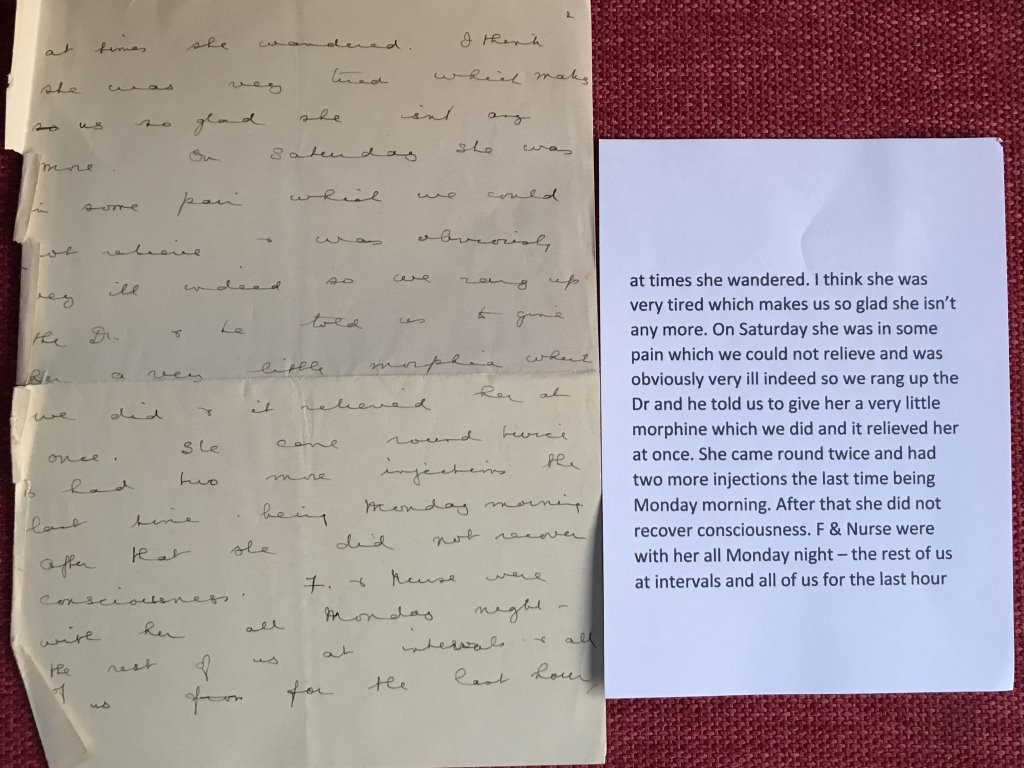 2
at times she wandered. I think
she was very tired which makes
so us so glad she isn't any
more. On Saturday she was
in some pain which we could
not relieve & was obviously
very ill indeed so we rang up
the Dr. & he told us to give
her a very little morphia which
we did & it relieved her at
once. She came round twice
& had two more injections the
last time being Monday morning
After that she did not recover
consciousness. F. & Nurse were
with her all Monday night –
the rest of us at intervals & all
of us from for the last hour,
at times she wandered. I think she was
very tired which makes us so glad she isn't
any more. On Saturday she was in some
pain which we could not relieve and was
obviously very ill indeed so we rang up the
Dr and he told us to give her a very little
morphine which we did and it relieved her
at once. She came round twice and had
two more injections the last time being
Monday morning. After that she did not
recover consciousness. F & Nurse were
with her all Monday night – the rest of us
at intervals and all of us for the last hour